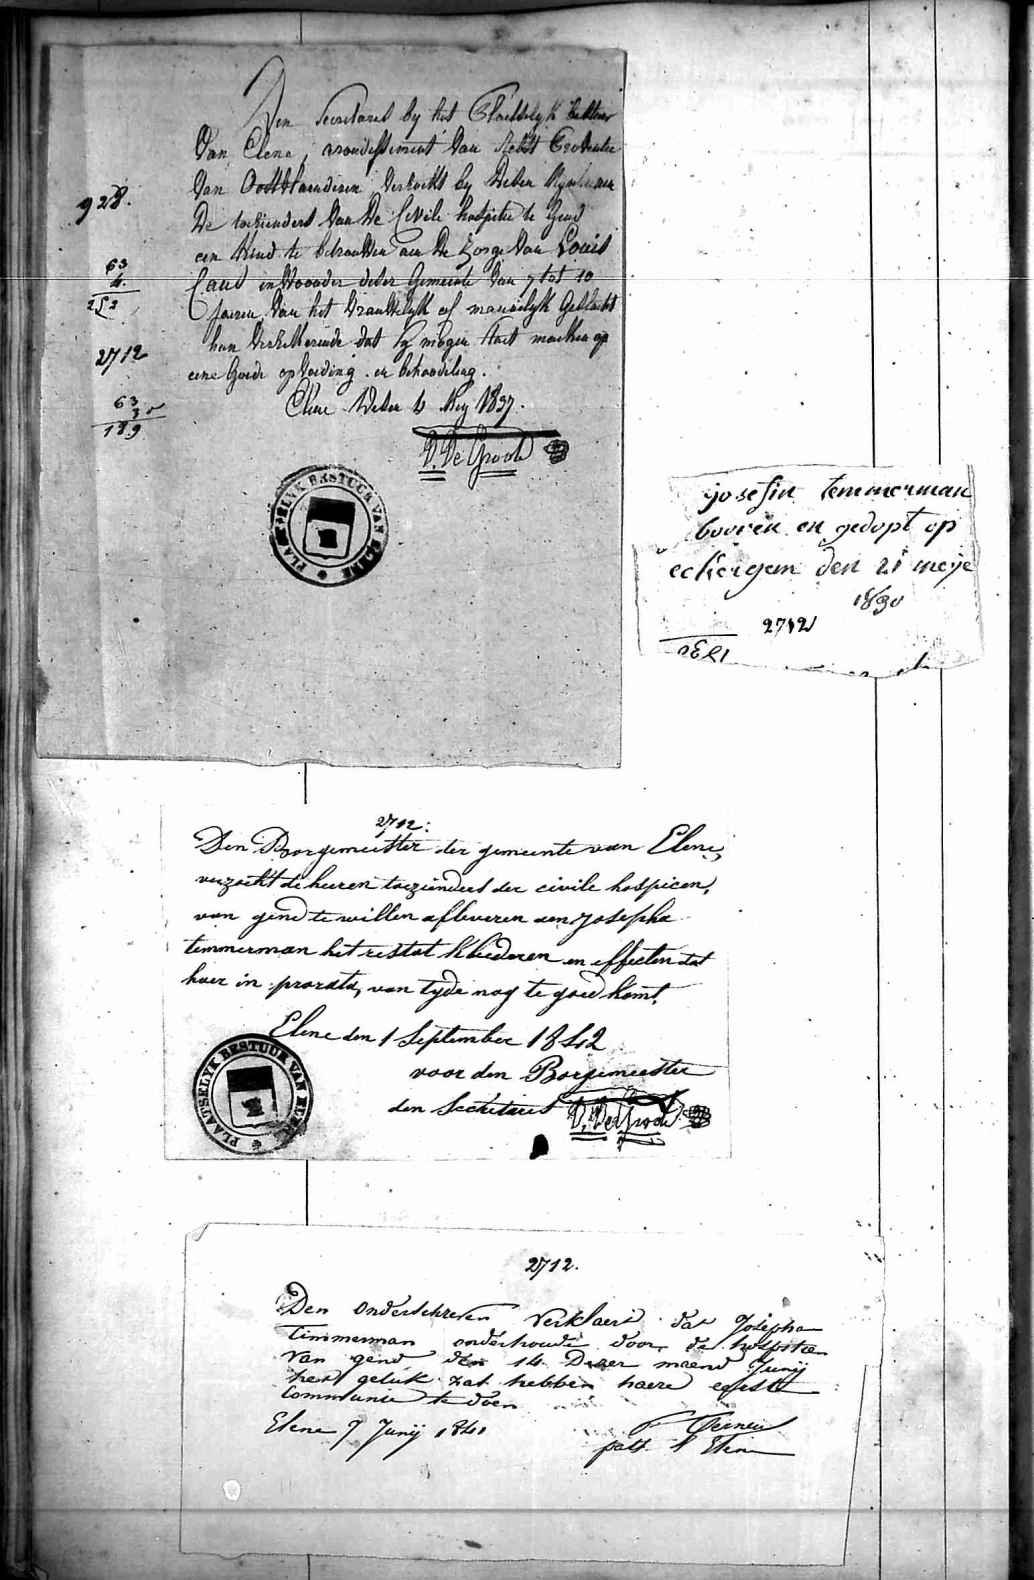 Den Secretaris by het Plaetselyk bestuer
Van Elene, arrondissement Van Aelst Provintie
Van Oostvlaenderen Verzoekt by dezen Mynheeren
928.
De toezienders Van De Civile hospitie te Gend
een Kind te betrouwen aen De Zorge Van Louis
63
4.
252
Caus inwoonder dezer Gemeente Van 7 tot 10
Jaeren Van het Vrauwelyk of mannelyk Geslacht
hun Verzekerende dat zy mogen staet maeken op
2712
eene Goede opvoeding en behandeling.
63
3
189
Elene dezen 4 Mey 1837.
D. De Groote
PLAETSELYK BESTUUR VAN ELENE
josefin temmerman
booren en gedopt op
eckergem den 21 meije
1830
2712
2712:
Den Borgemeester der gemeente van Elene,
verzoekt de heeren toezienders der civile hospicen,
van gend te willen afleveren aen Josepha
temmerman het restat kleederen en effecten dat
haer in prorata, van tyde nog te goed komt.
Elene den 1 September 1842
voor den Borgemeester
den Secretaris D. De Groote
PLAATSELYK BESTUUR VAN ELENE
2712.
Den onderschreven Verklaert dat Josepha
Timmerman onderhoude door de hospicen
Van gend den 14 Dezer maend Junij
het geluk zal hebben haere eerste
Communie te doen
Elene 7 Junij 1841
past. in Elene